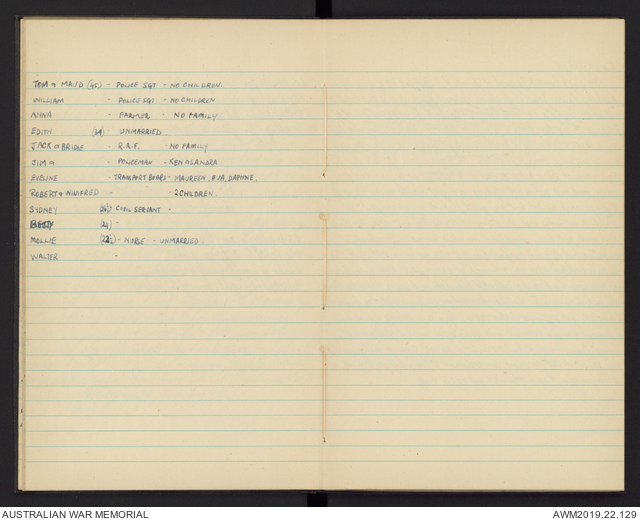 TOM & MAUD (45) - POLICE SGT - NO CHILDREN.
WILLIAM - POLICE SGT - NO CHILDREN
NINA - FARMER - NO FAMILY
EDITH (34) - UNMARRIED.
JACK & BRIDIE - R.A.F. - NO FAMILY
JIM & - POLICEMAN - KEN & SANDRA
EVELINE - TRANSPORT BOARD - MAUREEN, EVA, DAPHNE.
ROBERT & WINIFRED - - 2 CHILDREN.
SYDNEY CIVIL SERVANT -
BETTY (24) -
MOLLIE - NURSE - UNMARRIED.
WALTER -
AUSTRALIAN WAR MEMORIAL AWM2019.22.129